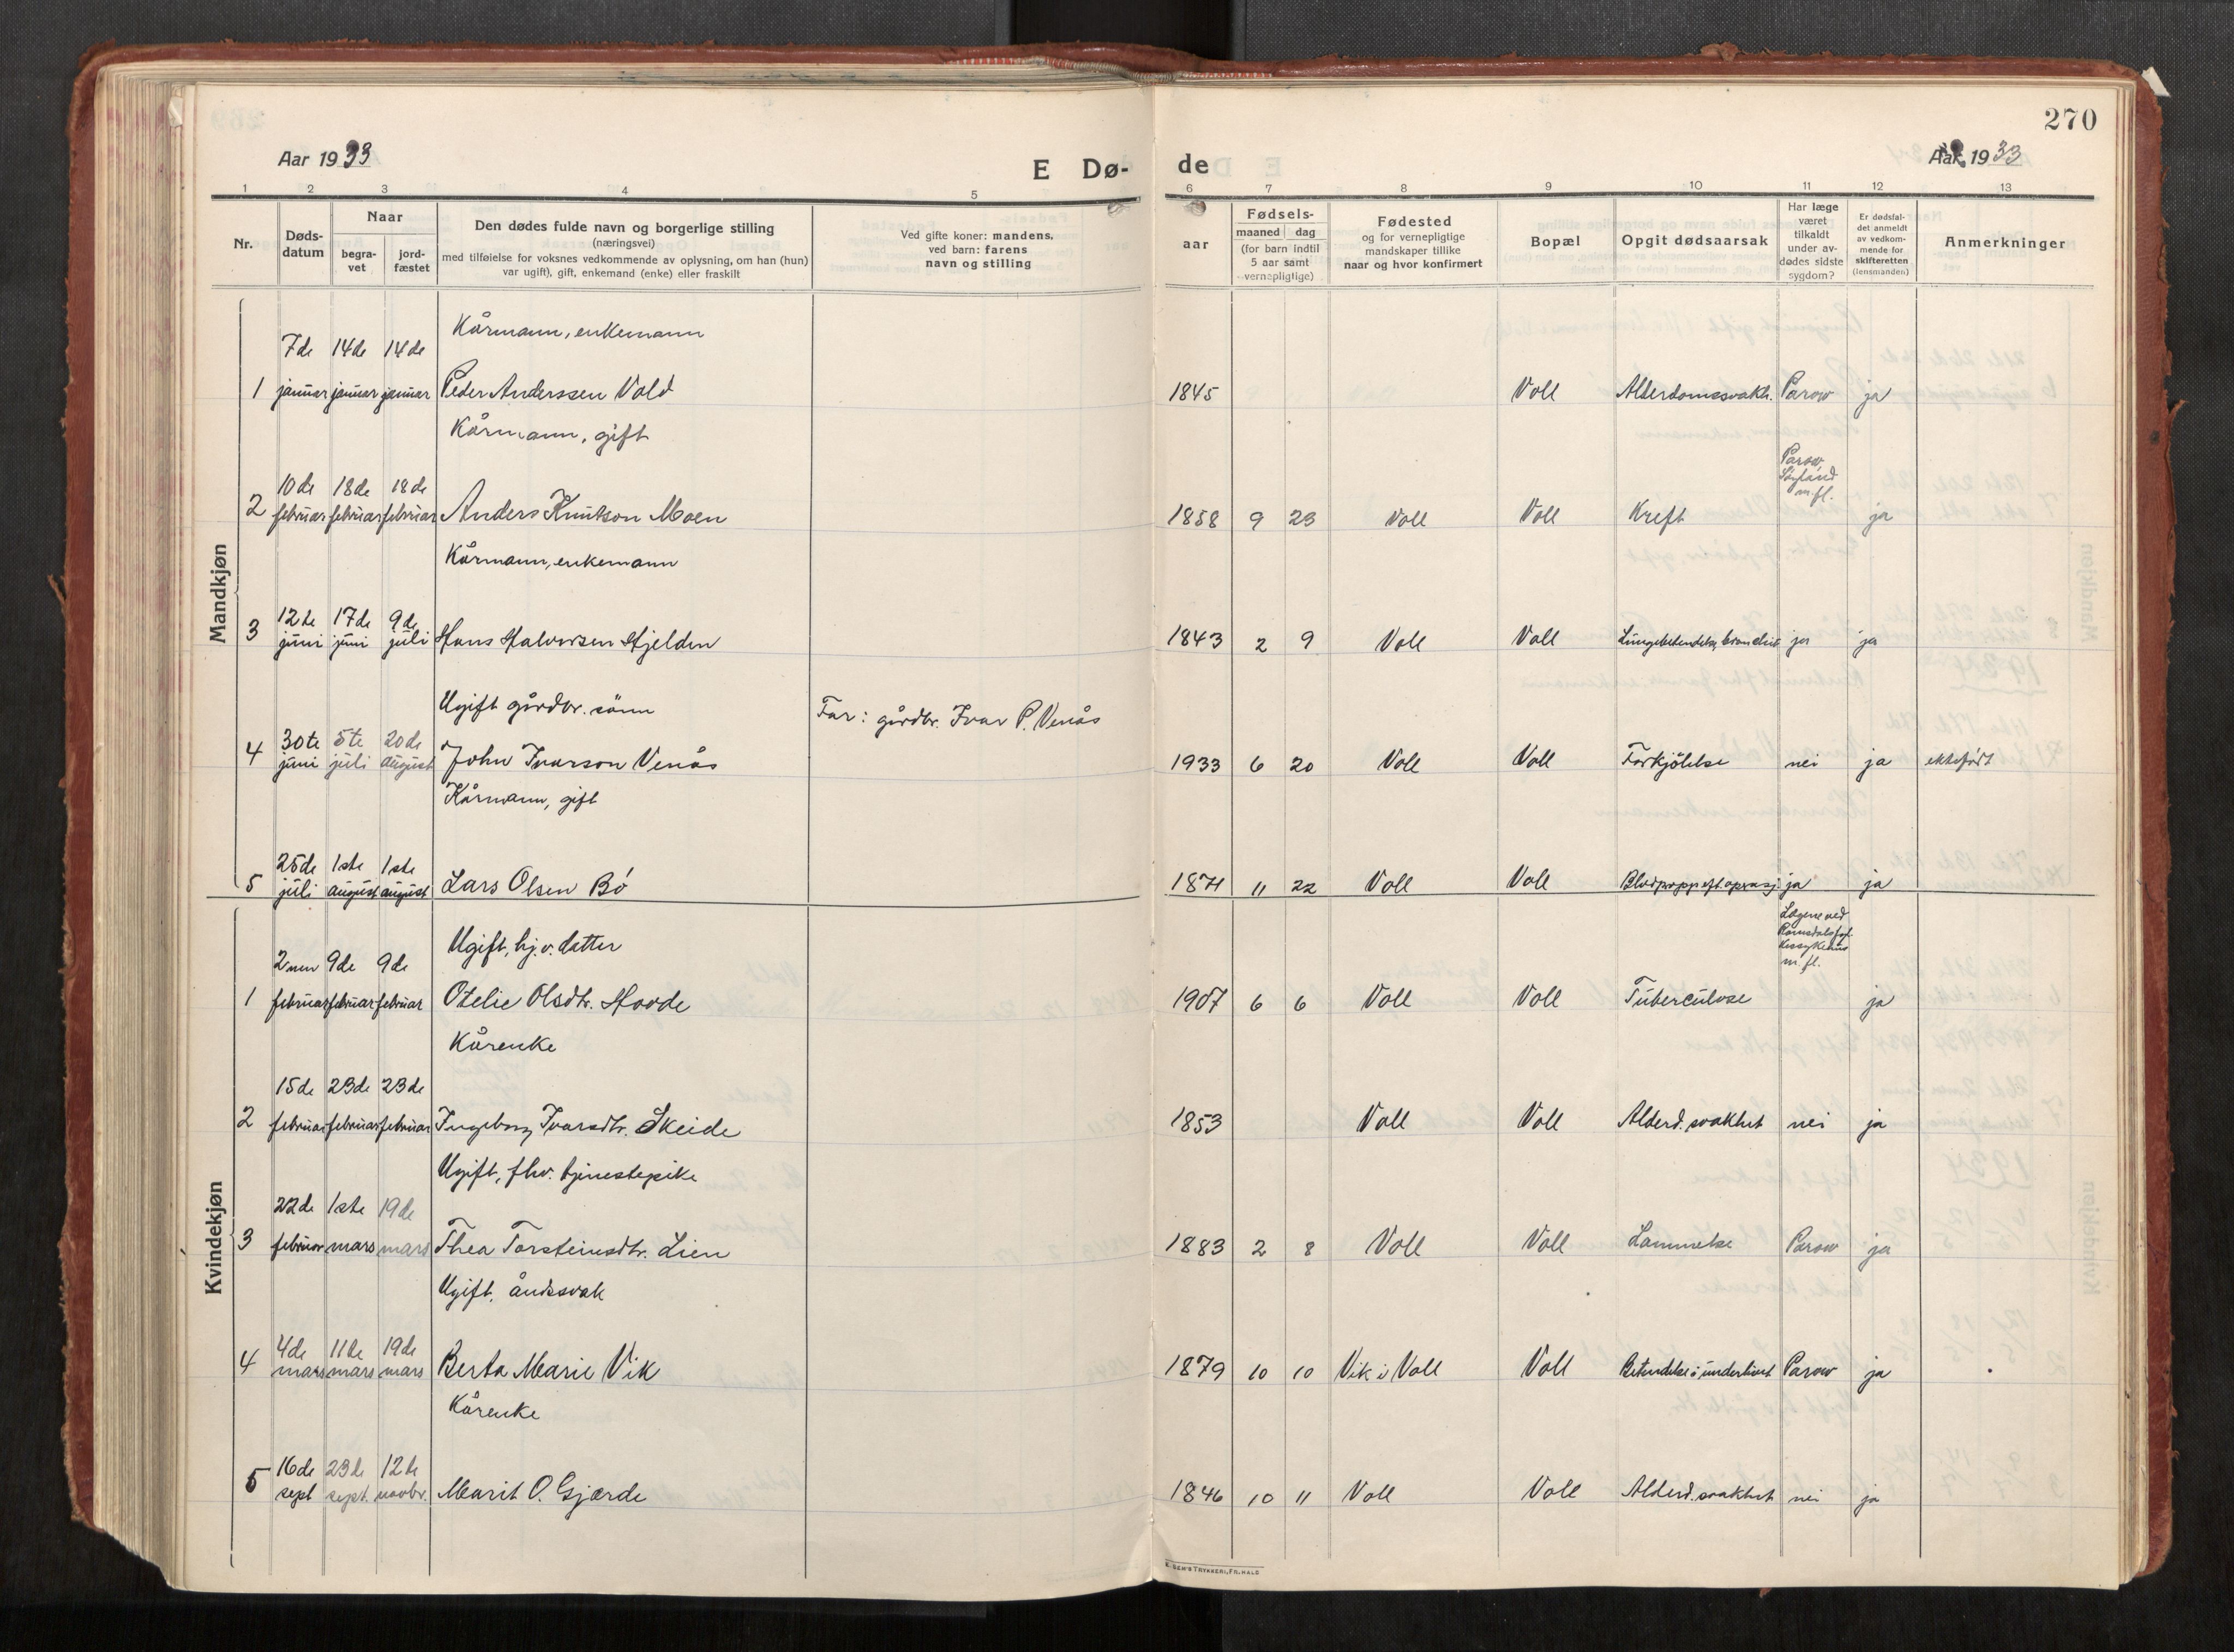 270
Aar 1933
E Dø-
de
Aar 1933
1 2 3 4 5 6 7 8 9 10 11 12 13
Nr.
Døds-
datum
Naar
begra-
vet
jord-
fæstet
Den dødes fulde navn og borgerlige stilling
(næringsvei)
med tilføielse for voksnes vedkommende av oplysning, om han (hun)
var ugift), gift, enkemand (enke) eller fraskilt
Ved gifte koner: mandens,
ved barn: farens
navn og stilling
aar
Fødsels-
maaned dag
(for barn indtil
5 aar samt
vernepligtige)
Fødested
og for vernepligtige
mandskaper tillike
naar og hvor konfirmert
Bopæl
Opgit dødsaarsak
Har læge
været
tilkaldt
under av-
dødes sidste
sygdom?
Er dødsfal-
det anmeldt
av vedkom-
mende for
skifteretten
(lensmanden)
Anmerkninger
Mandkjøn
Kårmann, enkemann
7de 14de 14de
1 januar januar januar Peder Anderssen Vold 1845 Voll Alderdomssvakh. Parow ja
Kårmann, gift
Parow
m. fl.
10de 18de 18de
2 februar februar februar Anders Knutson Moen 1858 9 23 Voll Voll Kreft ja
Kårmann, enkemann
12te 17de 9de
3 juni juni juli Hans Halvorsen Hjelden 1843 2 9 Voll Voll ja ja
Ugift gårdbr. sönn Far: gårdbr. Ivar P. Venås
30te 5te 20de
4 juni juli august John Ivarson Venås 1933 6 20 Voll Voll Forkjölelse nei ja ektefødt
Kårmann, gift
25de 1ste 1ste
5 juli august august Lars Olsen Bø 1871 11 22 Voll Voll Blodpropp eft. operasj. ja ja
Kvindekjøn
Ugift, hj. v. datter
Lægene ved
Romsdals fyl
kessykehus
m. fl.
2nen 9de 9de
1 februar februar februar Otelie Olsdtr. Hovde 1907 6 6 Voll Voll Tuberculose ja
Kårenke
15de 23de 23de
2 februar februar februar Ingeborg Ivarsdtr. Skeide 1853 Voll Voll Alderd. svakhet nei ja
Ugift, fhv. tjenestepike
22de 1ste 19de
3 februar mars mars Thea Torsteinsdtr. Lien 1883 2 8 Voll Voll Lammelse Parow ja
Ugift, åndssvak
4de 11te 19de
4 mars mars mars Berta Marie Vik 1879 10 10 Vik i Voll Voll Betendelse i underlivet Parow ja
Kårenke
16de 23de 12te
5 sept sept. novbr. Marit O. Gjærde 1846 10 11 Voll Voll Alderd. svakhet nei ja
E. SEM'S TRYKKERI, FR.HALD